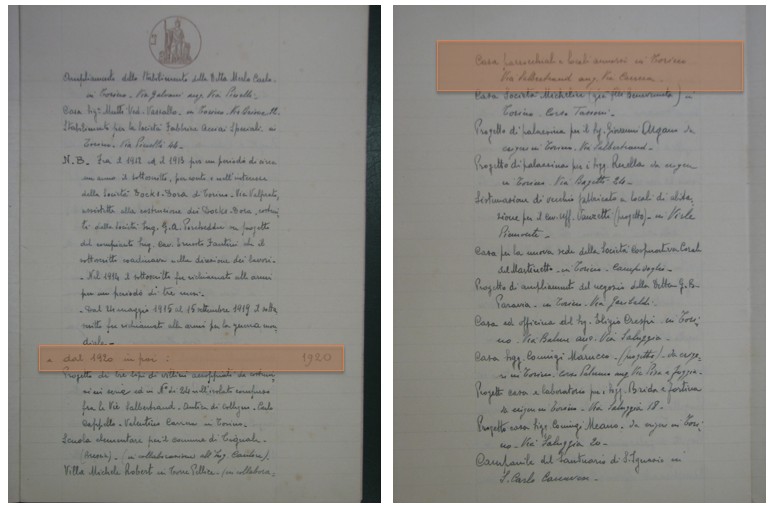 Ampliamento dello Stabilimento della Ditta Merlo Carlo.
in Torino. Via Galvani ang. Via Pinelli.
Casa Sig.
Ved. Vassallo. in Torino.
Stabilimento per la Società Fabbrica Acciai Speciali. in
Torino. Via Pinelli 44.
N.B. Fra il 1912 ed il 1913 per un periodo di circa
un anno il sottoscritto, per conto e nell'interesse
della Società Docks-Dora di Torino. Via Valprato,
assistette alla costruzione dei Docks Dora, costrui
ti dalla Società Ing. G.A. Porcheddu su progetto
del compianto Ing. Cav. Ernesto Fantini che il
sottoscritto coadiuvava alla direzione dei lavori.
- Nel 1914 il sottoscritto fu richiamato alle armi
per un periodo di tre mesi.
- Dal 24 maggio 1915 al 15 settembre 1919 il sotto
scritto fu richiamato alle armi per la guerra mon
diale.
dal 1920 in poi : 1920
Progetto dei tre tipi di villini accoppiati da costrui
si in serie ed in N° di 24 nell'isolato compreso
fra le Vie Salbertrand - Antica di Collegno - Carlo
Cappello - Valentino Carrera in Torino.
Scuola elementare per il comune di
(in collaborazione all'Ing.
Villa Michele Robert in Torre Pellice (in collabora.
Casa parrocchiale e locali annessi in Torino
Via Salbertrand ang. Via Carrera.
Casa Società Michelini (già
Benvenuto) in
Torino. Corso Tassoni.
Progetto di palazzina per il Sig. Giovanni Argano da
erigersi in Torino. Via Salbertrand.
Progetto di palazzina per i Sigg. Rerella da erigersi
in Torino. Via Bagetti 24.
Sistemazione di vecchio fabbricato a locali di abita
zione per il Cav. Uff.
(progetto) - in Viale
Piemonte.
Casa per la nuova sede della Società Cooperativa Corale
del Martinetto - in Torino - Campidoglio.
Progetto di ampliamento del negozio della Ditta G.B.
Paravia. in Torino. Via Garibaldi.
Casa ed officina del Sig. Eligio Crespi. in Tori
no. Via Balme ang. Via Saluggia.
Casa Sigg. Coniugi Marucco - (progetto) - da eriger
si in Torino. Corso Palermo ang. Via Pisa e Foggia.
Progetto casa e laboratorio per i Sigg. Brida e
da erigersi in Torino. Via Saluggia 18.
Progetto casa Sigg. Coniugi Meano. da erigersi in Tori
no. Via Saluggia 20.
Campanile del Santuario di S. Ignazio in
S. Carlo Canavese.